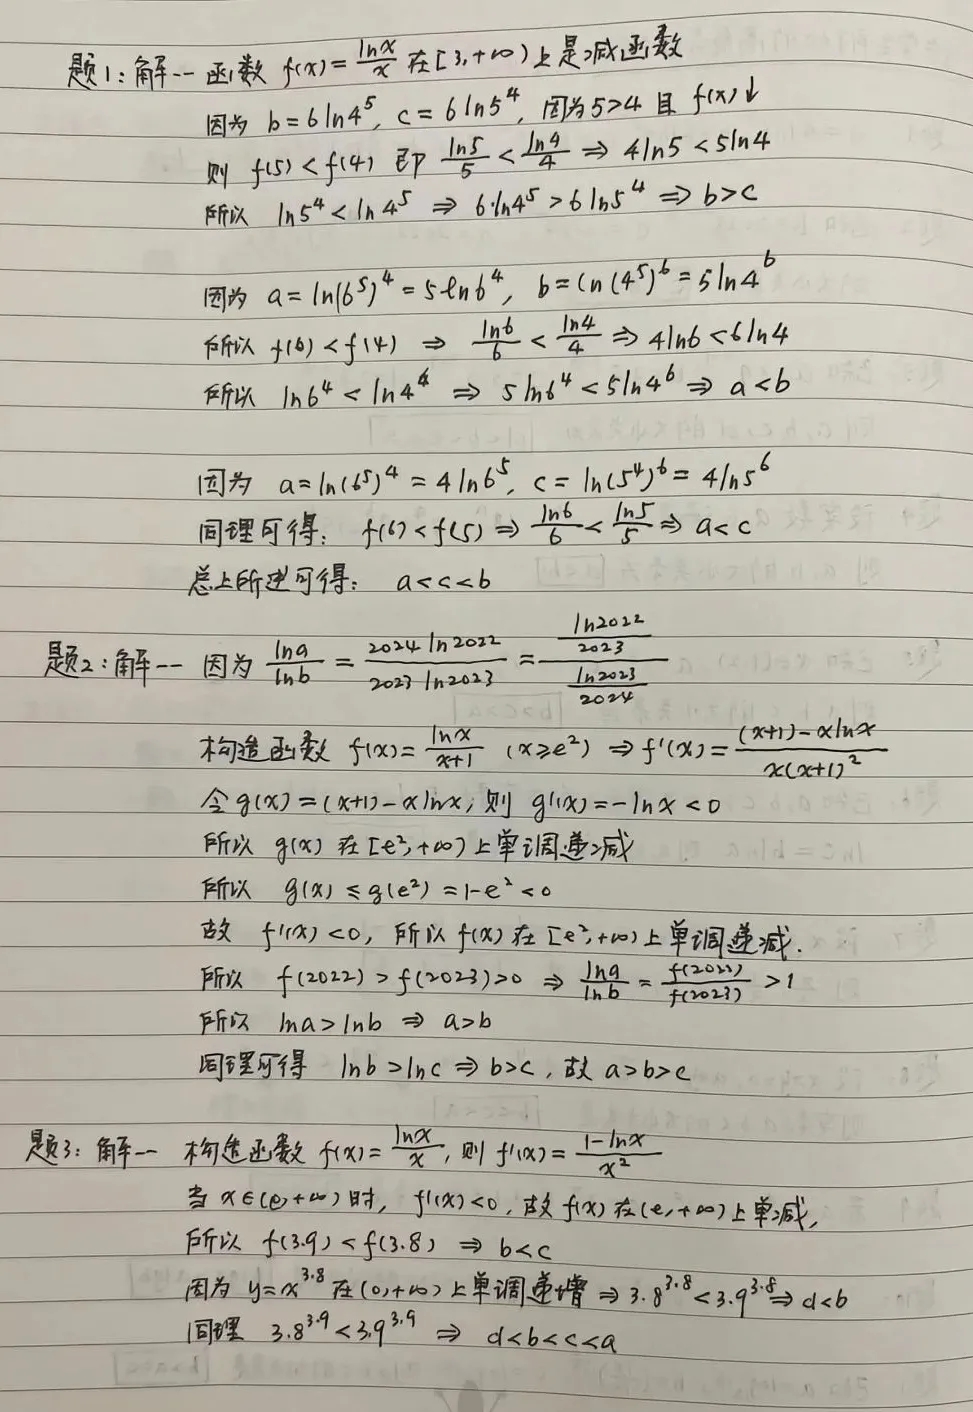 题1:解一 函数 f(x)=\frac{lnx}{x} 在[3,+∞)上是减函数
因为 b=6ln4^5, c=6ln5^4, 因为5>4 且 f(x)↓
则 f(5)<f(4) 即 \frac{ln5}{5}<\frac{ln4}{4} ⇒ 4ln5<5ln4
所以 ln5^4<ln4^5 ⇒ 6·ln4^5>6ln5^4 ⇒ b>c
因为 a=ln(6^5)^4=5ln6^4, b=ln(4^5)^6=5ln4^6
所以 f(6)<f(4) ⇒ \frac{ln6}{6}<\frac{ln4}{4} ⇒ 4ln6<6ln4
所以 ln6^4<ln4^6 ⇒ 5ln6^4<5ln4^6 ⇒ a<b
因为 a=ln(6^5)^4=4ln6^5, c=ln(5^4)^6=4ln5^6
同理可得: f(6)<f(5) ⇒ \frac{ln6}{6}<\frac{ln5}{5} ⇒ a<c
总上所述可得: a<c<b
题2:解一 因为 \frac{lna}{lnb}=\frac{2024ln2022}{2023ln2023}=\frac{\frac{ln2022}{2023}}{\frac{ln2023}{2024}}
构造函数 f(x)=\frac{lnx}{x+1} (x≥e^2) ⇒ f'(x)=\frac{(x+1)-xlnx}{x(x+1)^2}
令g(x)=(x+1)-xlnx, 则 g'(x)=-lnx<0
所以 g(x)在[e^2,+∞)上单调递减
所以 g(x)≤g(e^2)=1-e^2<0
故 f'(x)<0, 所以f(x)在[e^2,+∞)上单调递减.
所以 f(2022)>f(2023)>0 ⇒ \frac{lna}{lnb}=\frac{f(2022)}{f(2023)}>1
所以 lna>lnb ⇒ a>b
同理可得 lnb>lnc ⇒ b>c, 故 a>b>c
题3:解一 构造函数 f(x)=\frac{lnx}{x}, 则 f'(x)=\frac{1-lnx}{x^2}
当 x∈(e,+∞)时, f'(x)<0, 故f(x)在(e,+∞)上单减,
所以 f(3.9)<f(3.8) ⇒ b<c
因为 y=x^{3.8} 在(0,+∞)上单调递增 ⇒ 3.8^{3.8}<3.9^{3.8} ⇒ d<b
同理 3.8^{3.9}<3.9^{3.9} ⇒ d<b<c<a